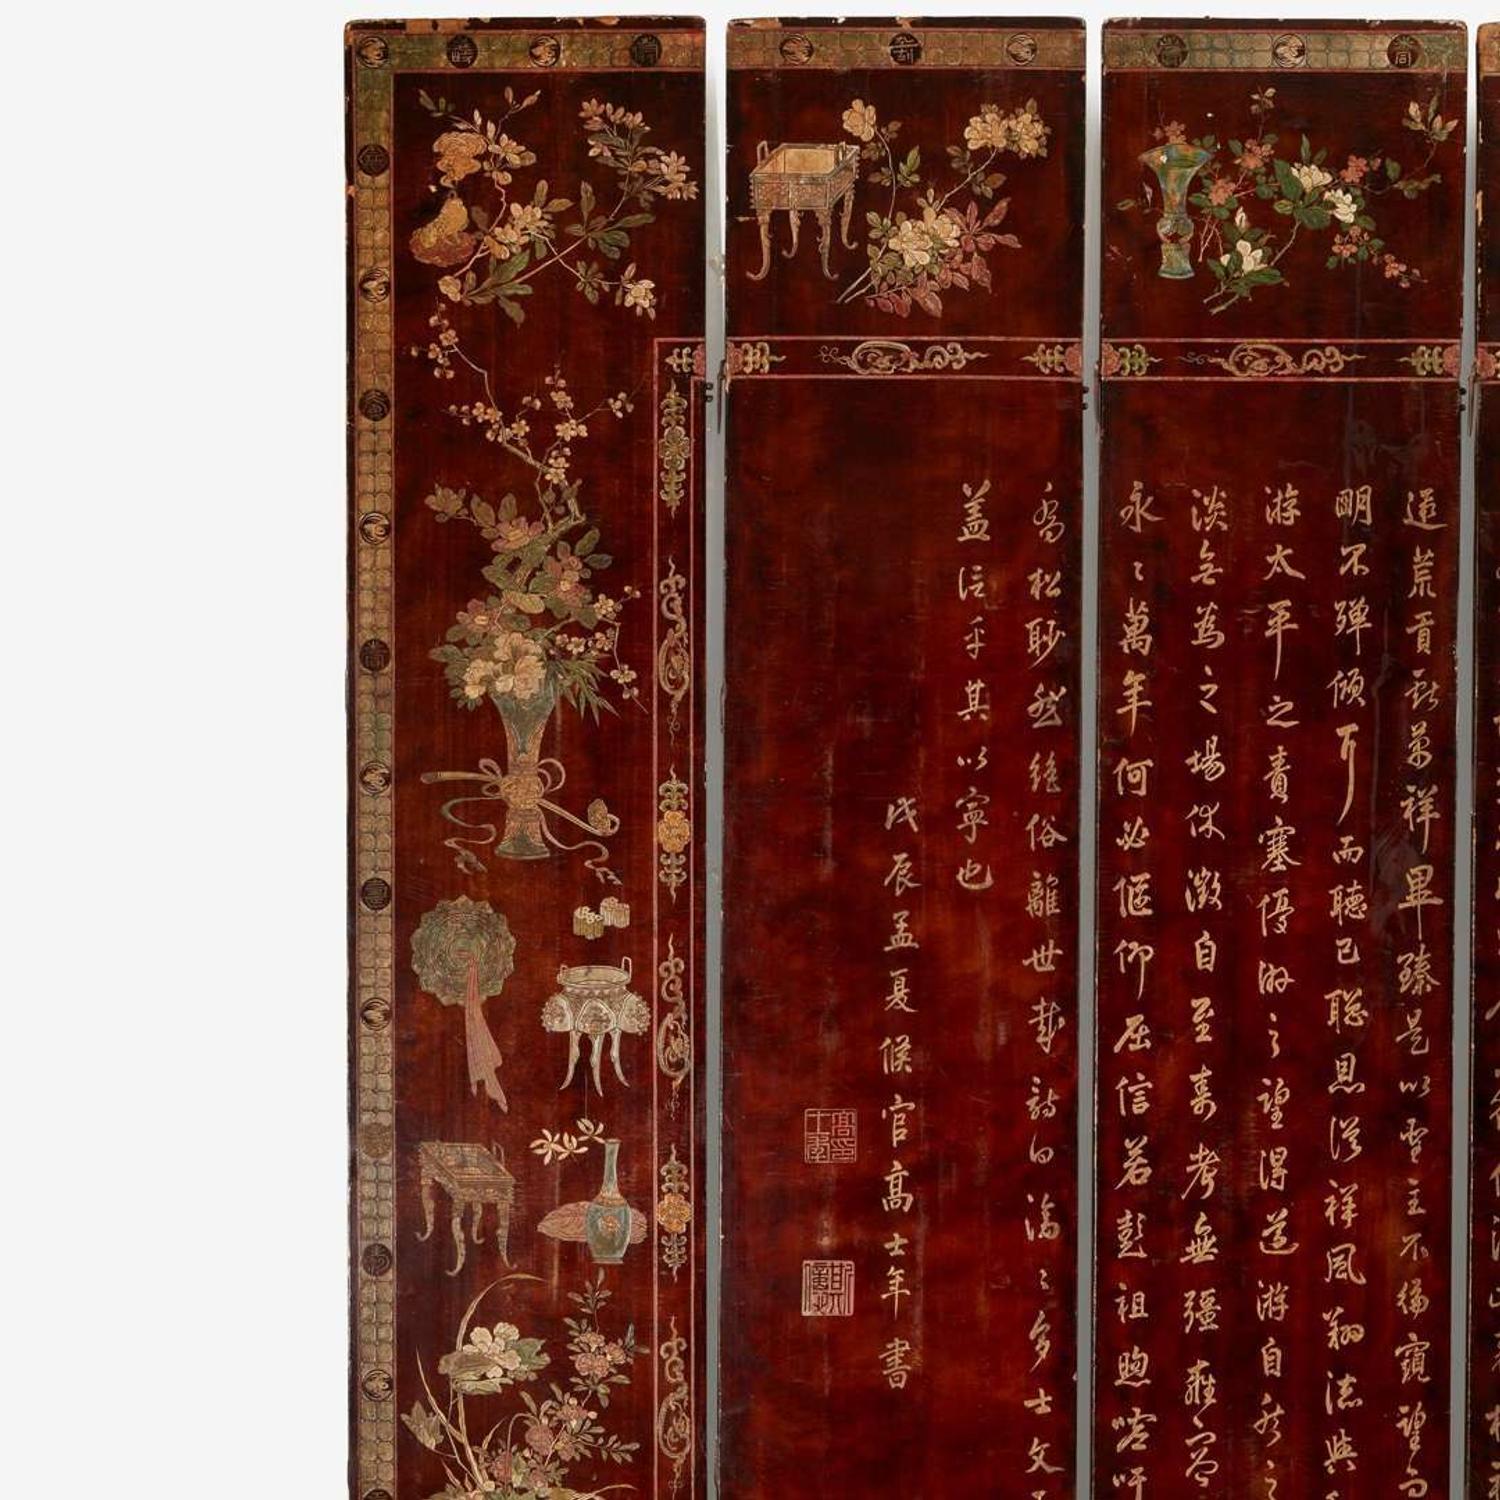 遐荒貢獻萬祥畢臻是以聖主不徧窺望
明不殫傾耳而聽已聰恩從祥風翱德與
游太平之責塞優游之望得遵游自然之
淡無為之場休徵自至壽考無疆雍容
永〻萬年何必偃仰屈信若彭祖呴噓呼
喬松眇然絕俗離世哉詩曰濟〻多士文
蓋信乎其以寧也
戊辰孟夏候官高士年書